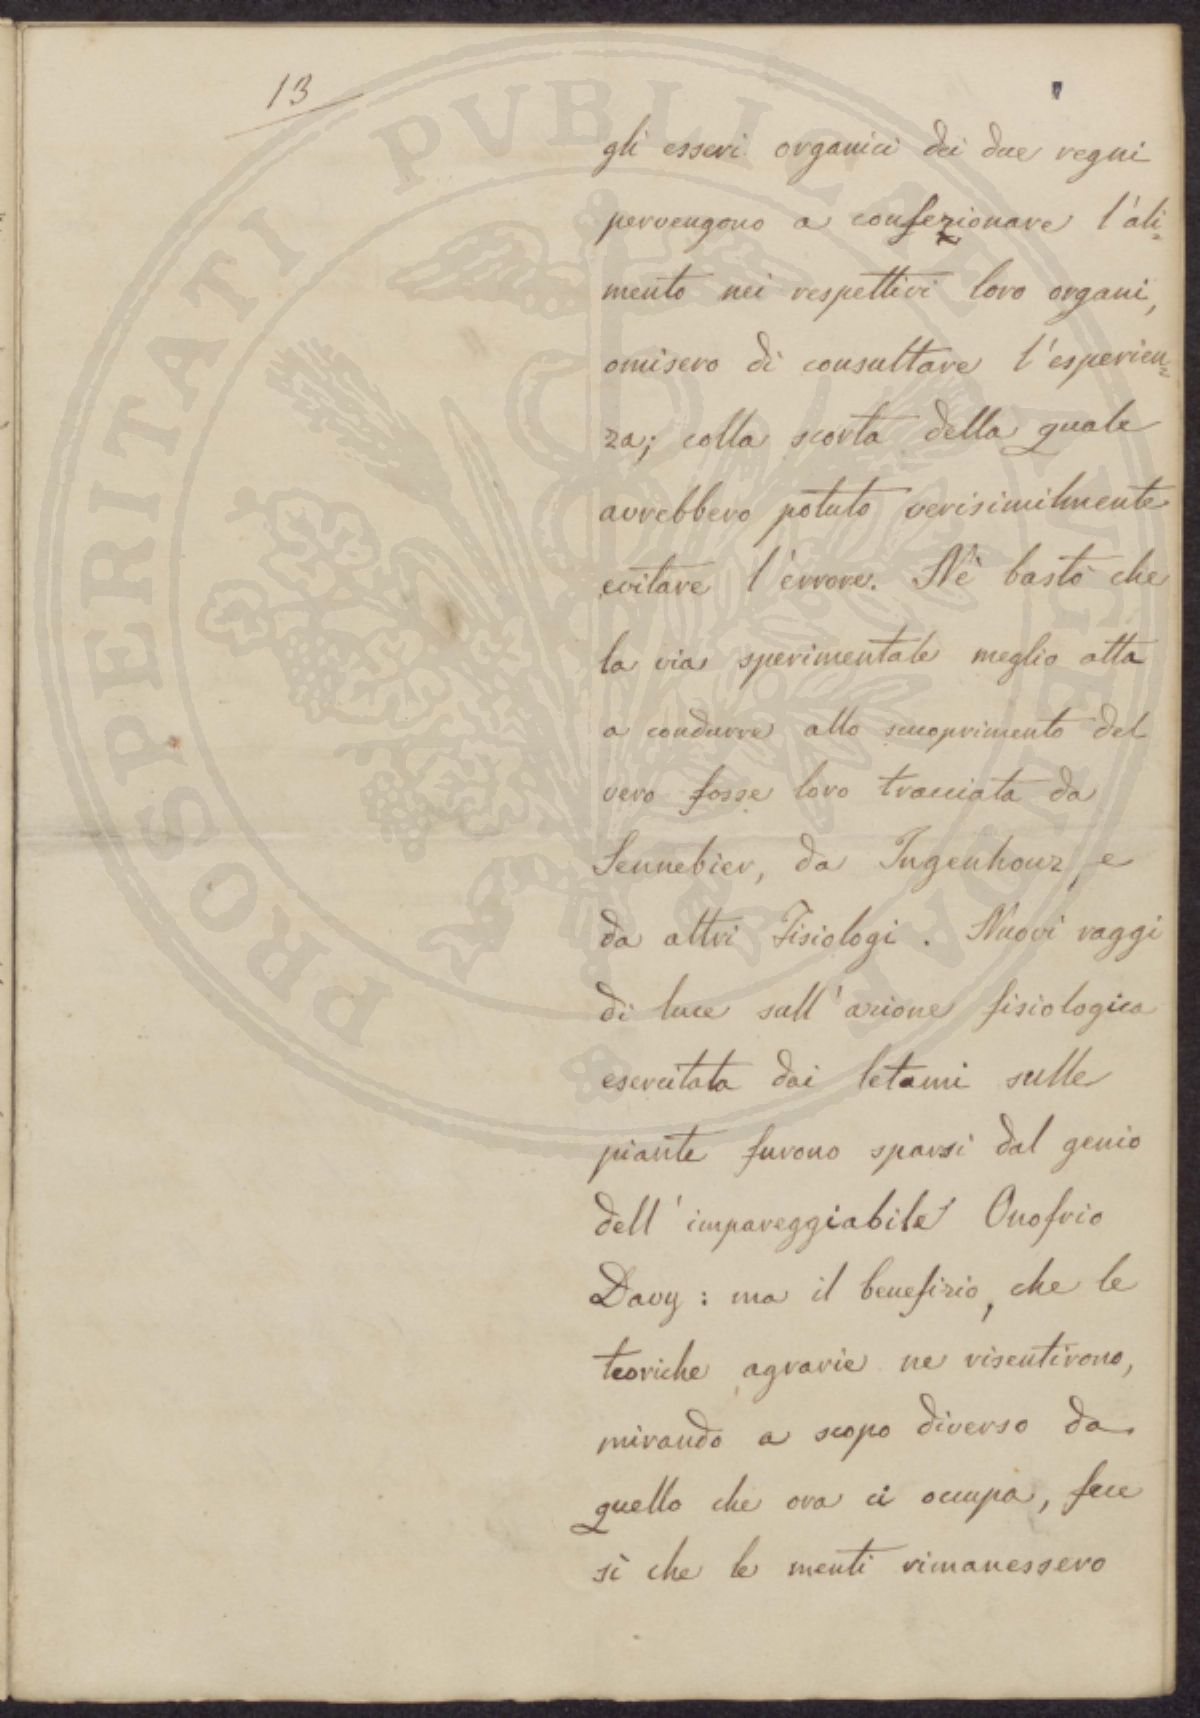 13
gli esseri organici dei due regni
pervengono a confezionare l'ali=
mento nei respettivi loro organi,
omisero di consultare l'esperien=
za; colla scorta della quale
avrebbero potuto verisimilmente
evitare l'errore. Nè bastò che
la via sperimentale meglio atta
a condurre allo scuoprimento del
vero fosse loro tracciata da
Sennebier, da Ingenhouz, e
da altri Fisiologi. Nuovi raggi
di luce sull'azione fisiologica
esercitata dai letami sulle
piante furono sparsi dal genio
dell'impareggiabile Onofrio
Davy: ma il benefizio, che le
teoriche agrarie ne risentirono,
mirando a scopo diverso da
quello che ora ci occupa, fece
sì che le menti rimanessero
PROSPERITATI PVBLICAE AVGENDAE